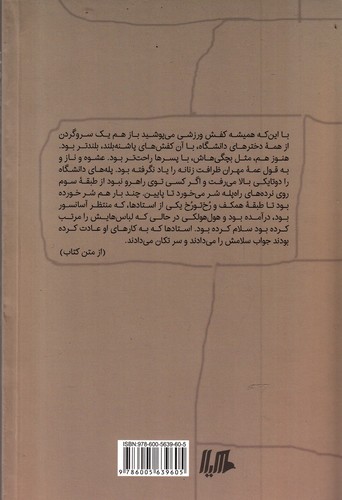 با این‌که همیشه کفش ورزشی می‌پوشید باز هم یک سروگردن
از همهٔ دخترهای دانشگاه، با آن کفش‌های پاشنه‌بلند، بلندتر بود.
هنوز هم، مثل بچگی‌هاش، با پسرها راحت‌تر بود. عشوه و ناز و
به قول عمهٔ مهران ظرافت زنانه را یاد نگرفته بود. پله‌های دانشگاه
را دوتایکی بالا می‌رفت و اگر کسی توی راهرو نبود از طبقهٔ سوم
روی نرده‌های راه‌پله سُر می‌خورد تا پایین. چند بار هم سُر خورده
بود تا طبقهٔ همکف و رُخ‌توُرخ یکی از استادها، که منتظر آسانسور
بود، درآمده بود و هول‌هولکی در حالی که لباس‌هایش را مرتب
کرده بود سلام کرده بود. استادها که به کارهای او عادت کرده
بودند جواب سلامش را می‌دادند و سر تکان می‌دادند.
(از متن کتاب)
ISBN: 978-600-5639-60-5
9 786005 639605
هیلا